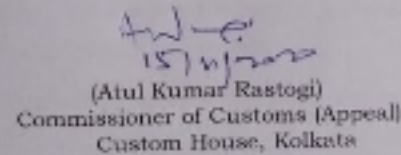 15/11/2020
(Atul Kumar Rastogi)
Commissioner of Customs (Appeal)
Custom House, Kolkata